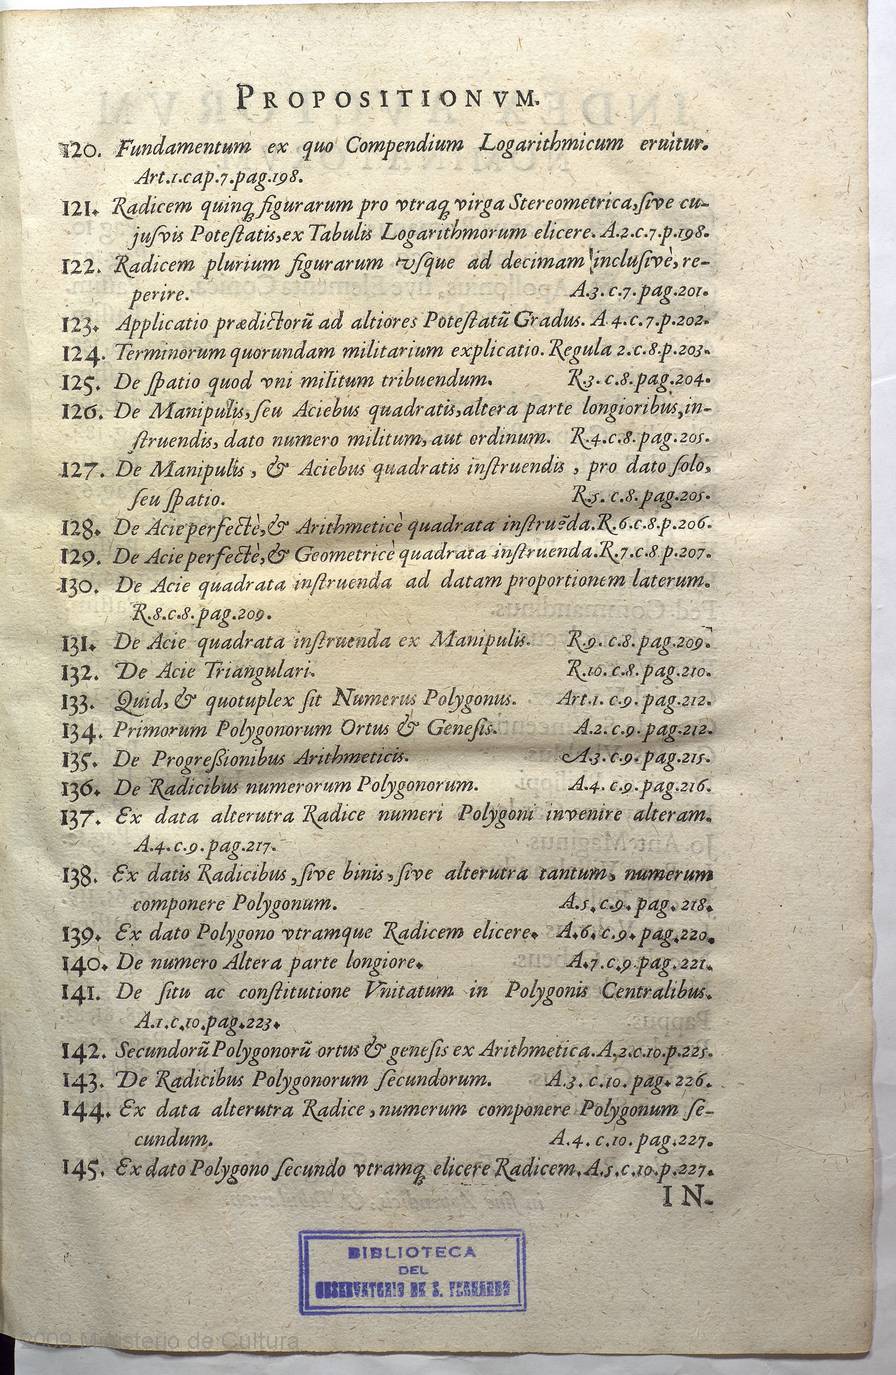 PROPOSITIONVM.
120. Fundamentum ex quo Compendium Logarithmicum eruitur.
Art.1.cap.7.pag.198.
121. Radicem quinq; figurarum pro vtraq; virga Stereometrica,ſive cu-
juſvis Poteſtatis,ex Tabulis Logarithmorum elicere. A.2.c.7.p.198.
122. Radicem plurium figurarum vſque ad decimam incluſivè, re-
perire. A.3. c.7. pag.201.
123. Applicatio prædictorũ ad altiores Poteſtatũ Gradus. A 4.c.7.p.202.
124. Terminorum quorundam militarium explicatio. Regula 2.c.8.p.203.
125. De ſpatio quod vni militum tribuendum. R.3. c.8. pag.204.
126. De Manipulis, ſeu Aciebus quadratis,altera parte longioribus,in-
ſtruendis, dato numero militum, aut ordinum. R.4.c.8.pag.205.
127. De Manipulis, & Aciebus quadratis inſtruendis, pro dato ſolo,
ſeu ſpatio. R.5. c.8. pag.205.
128. De Acie perfectè,& Arithmeticè quadrata inſtruẽda. R.6.c.8.p.206.
129. De Acie perfectè,& Geometricè quadrata inſtruenda. R.7.c.8.p.207.
130. De Acie quadrata inſtruenda ad datam proportionem laterum.
R.8.c.8.pag.209.
131. De Acie quadrata inſtruenda ex Manipulis. R.9. c.8. pag.209.
132. De Acie Triangulari. R.10. c.8. pag.210.
133. Quid, & quotuplex ſit Numerus Polygonus. Art.1. c.9. pag.212.
134. Primorum Polygonorum Ortus & Geneſis. A.2. c.9. pag.212.
135. De Progreßionibus Arithmeticis. A.3. c.9. pag.215.
136. De Radicibus numerorum Polygonorum. A.4. c.9. pag.216.
137. Ex data alterutra Radice numeri Polygoni invenire alteram.
A.4. c.9. pag.217.
138. Ex datis Radicibus, ſive binis, ſive alterutra tantum, numerum
componere Polygonum. A.5. c.9. pag. 218.
139. Ex dato Polygono vtramque Radicem elicere. A.6. c.9. pag.220.
140. De numero Altera parte longiore. A.7. c.9. pag.221.
141. De ſitu ac conſtitutione Vnitatum in Polygonis Centralibus.
A.1.c.10.pag.223.
142. Secundorũ Polygonorũ ortus & geneſis ex Arithmetica. A.2.c.10.p.225.
143. De Radicibus Polygonorum ſecundorum. A.3. c.10. pag. 226.
144. Ex data alterutra Radice, numerum componere Polygonum ſe-
cundum. A.4. c.10. pag.227.
145. Ex dato Polygono ſecundo vtramq; elicere Radicem. A.5.c.10.p.227.
IN-
BIBLIOTECA
DEL
OBSERVATORIO DE S. FERNANDO
2009 Ministerio de Cultura